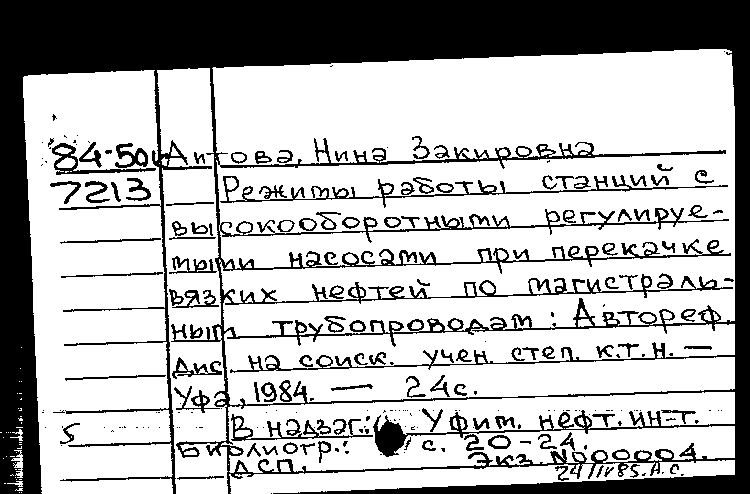 84-50 Аитова, Нина Закировна
7213 Режимы работы станций с
высокооборотными регулируе-
мыми насосами при перекачке
вязких нефтей по магистраль-
ным трубопроводам: Автореф.
дис. на соиск. учен. степ. к.т.н. —
Уфа, 1984. — 24с.
5 В надзаг.: Уфим. нефт. ин-т.
Библиогр.: с. 20-24.
ДСП. Экз. №00004.
24/IV85. А.С.